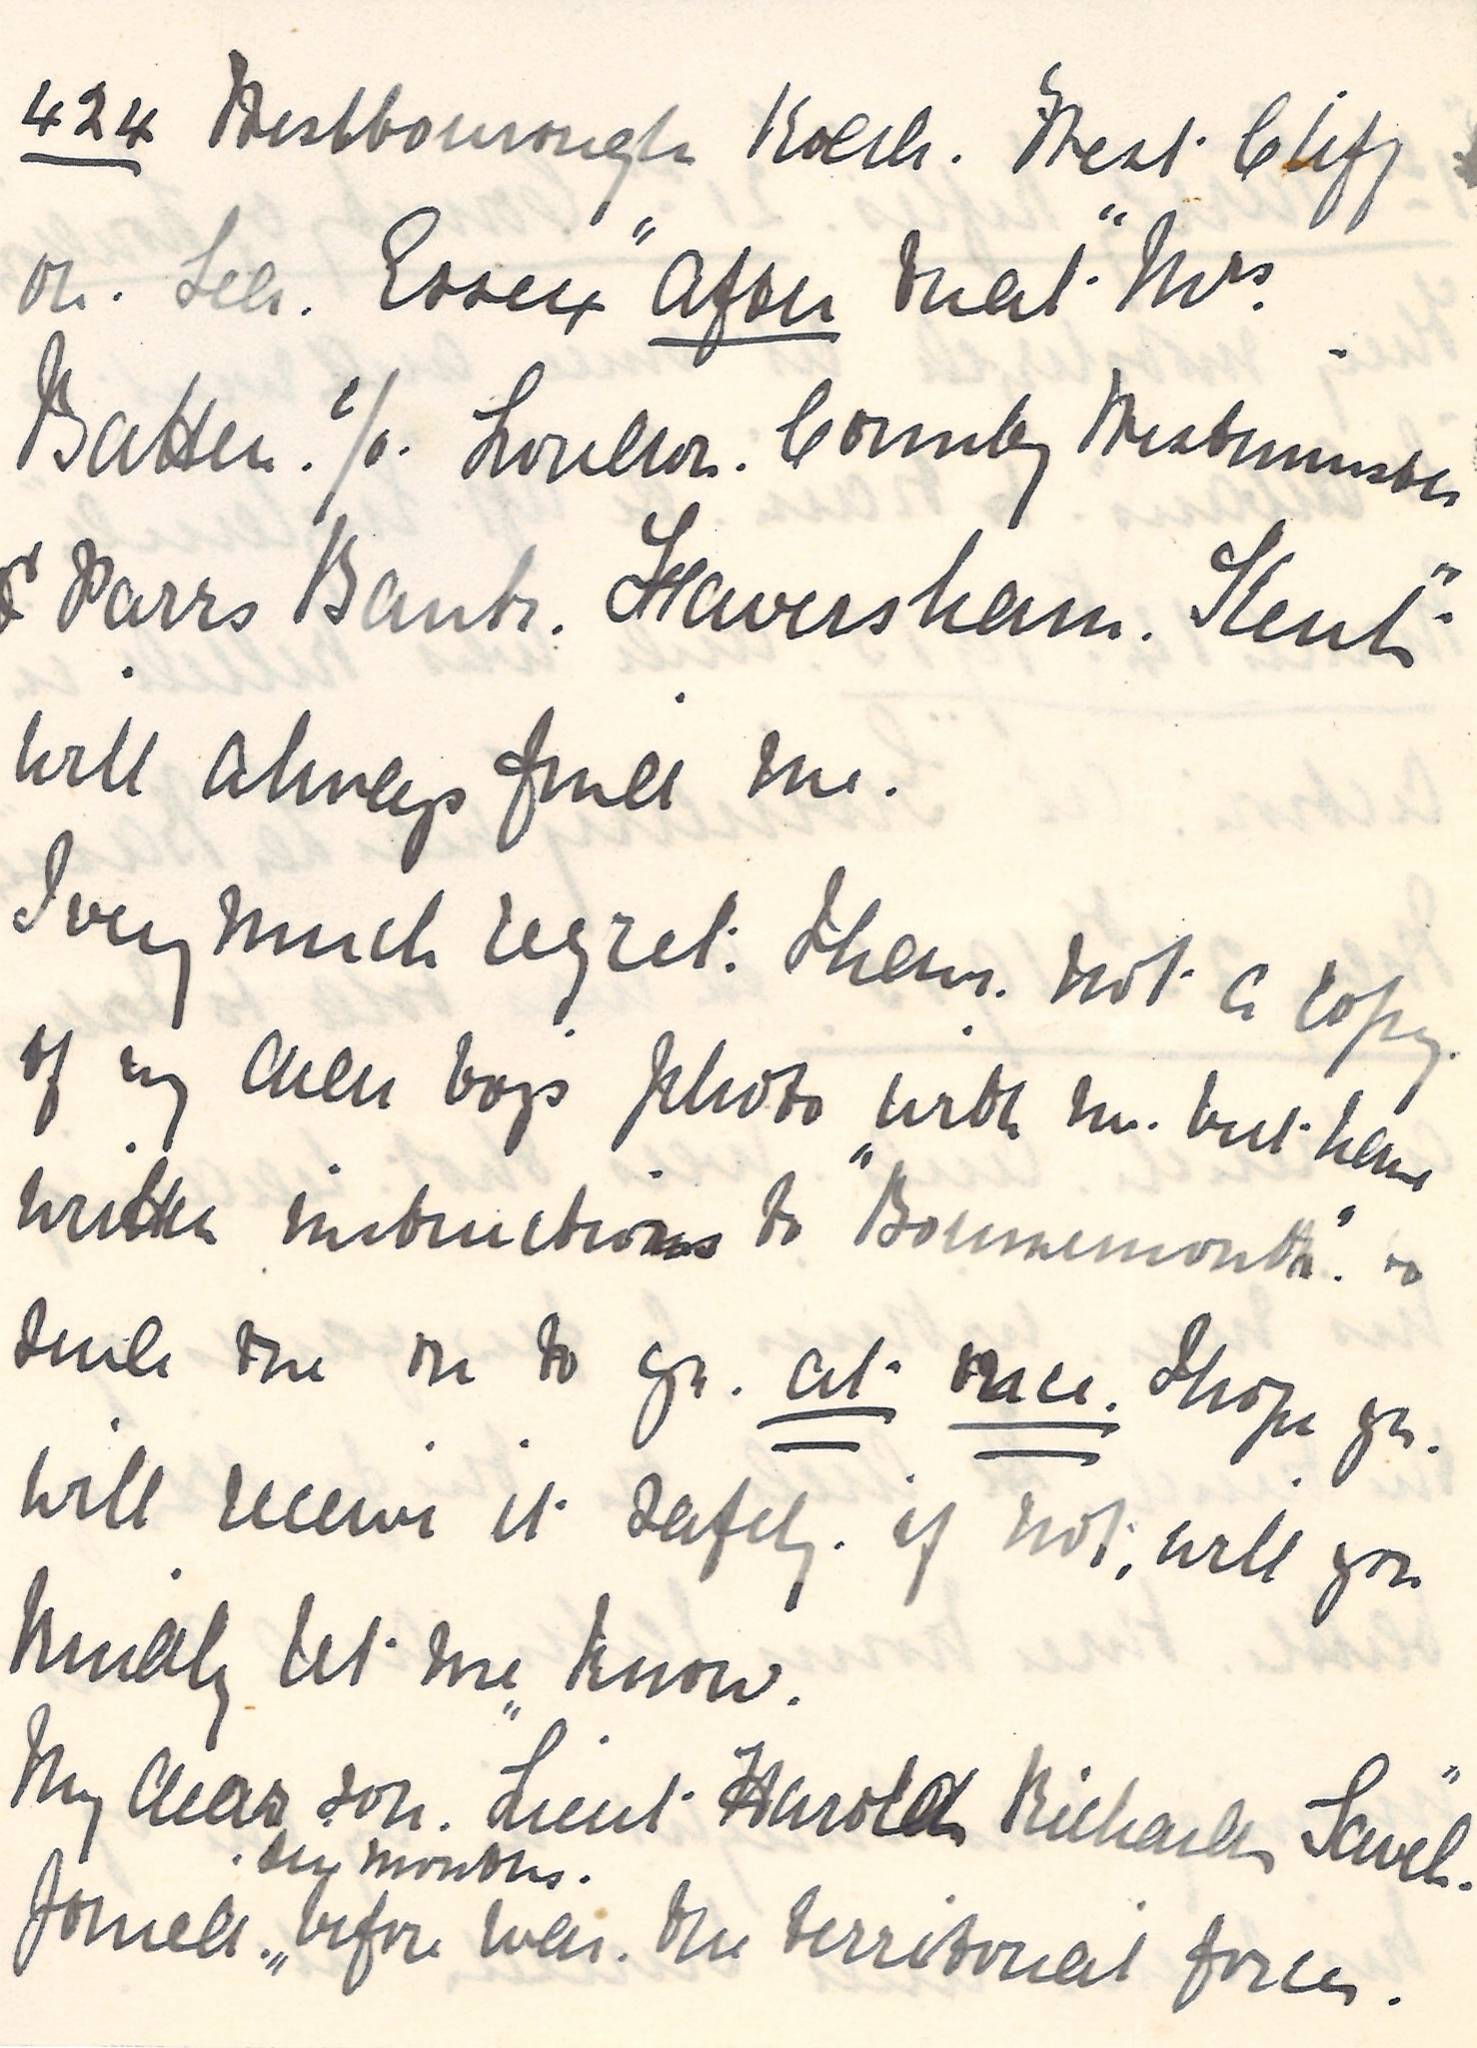 424 Westbourough Road. West Cliff
on. Sea. Essex" After that "Mrs.
Batten. c/o. London. County Westminster
& Parrs Bank. Faversham. Kent"
will always find me.
I very much regret. I have. not a copy.
of my dear boy's photo with me. but have
written instructions to "Bournemouth". to
send one on to you. at once. I hope you.
will receive it safely. if not, will you
kindly let me know.
My dear son. "Lieut Harold Richard Savel."
. six months.
Joined. "before war. the territorial forces.